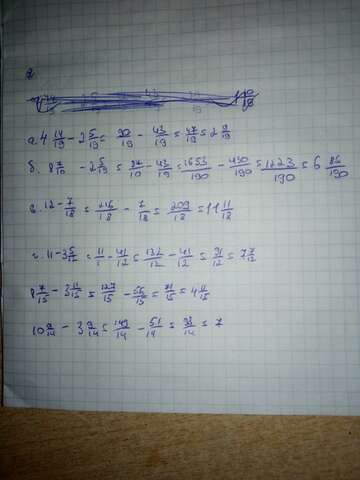 2
а. 4 14/19 - 2 5/19 = 90/19 - 43/19 = 47/19 = 2 9/19
б. 8 7/10 - 2 5/19 = 87/10 - 43/19 = 1653/190 - 430/190 = 1223/190 = 6 86/190
в. 12 - 7/18 = 216/18 - 7/18 = 209/18 = 11 11/18
г. 11 - 3 5/12 = 11/1 - 41/12 = 132/12 - 41/12 = 91/12 = 7 7/12
8 7/15 - 3 11/15 = 127/15 - 56/15 = 71/15 = 4 11/15
10 9/14 - 3 9/14 = 149/14 - 51/14 = 98/14 = 7